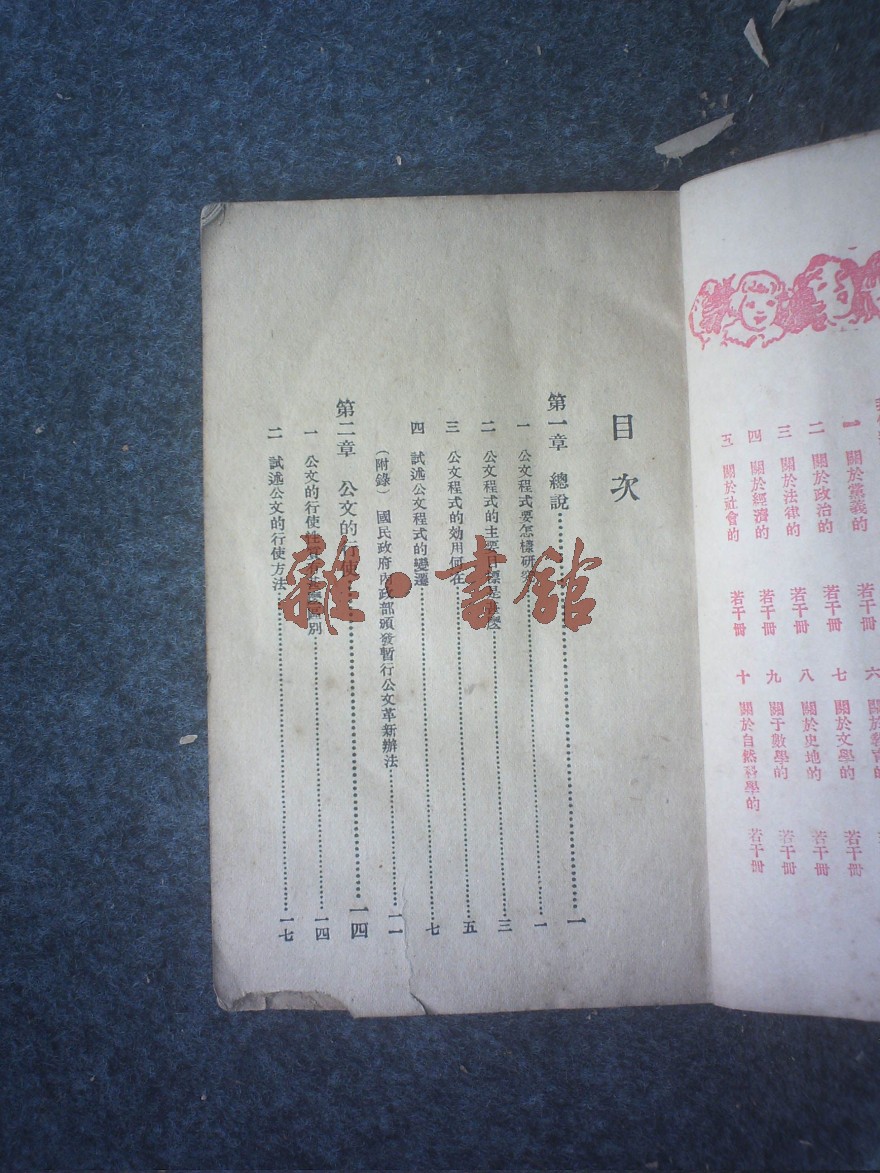 一 關於黨義的 若干冊 六 關於教育的
二 關於政治的 若干冊 七 關於文學的 若干冊
三 關於法律的 若干冊 八 關於史地的 若干冊
四 關於經濟的 若干冊 九 關于數學的 若干冊
五 關於社會的 若干冊 十 關於自然科學的 若干冊
目次
第一章 總說……一
一 公文程式要怎樣研究……一
二 公文程式的主要目標是甚麼……三
三 公文程式的効用何在……五
四 試述公文程式的變遷……七
(附錄) 國民政府內政部頒發暫行公文革新辦法……一一
第二章 公文的行使……一四
一 公文的行使性質有甚麼區別……一四
二 試述公文的行使方法……一七
雜·書館